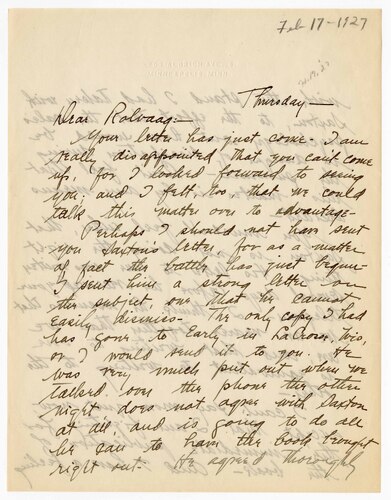 Feb 17-1927
MINNEAPOLIS, MINN.
Thursday-
Dear Rolvaag:-
Your letter has just come. I am
really disappointed that you can't come
up, for I looked forward to seeing
you; and I felt, too, that we could
talk this matter over to advantage-
Perhaps I should not have sent
you Saxton's letter, for as a matter
of fact the battle has just begun-
I sent him a strong letter on
the subject, one that he cannot
easily dismiss- The only copy I had
has gone to Early in LaCrosse, Wis,
or I would send it to you. He
was very much put out when we
talked over the phone the other
night does not agree with Saxton
at all and is going to do all
he can to have the book brought
right out- He agreed thoroughly